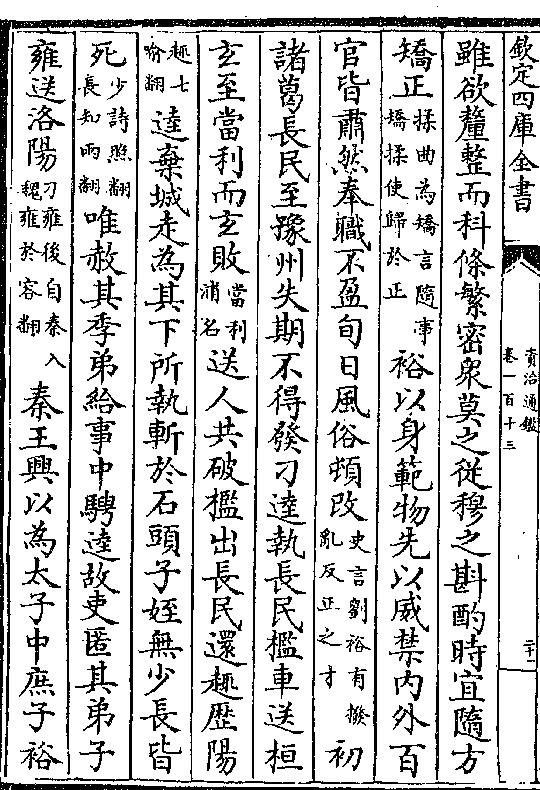 欽定四庫全書
資治通鑑
卷一百十三
二十一
雖欲釐整而科條繁密衆莫之從穆之斟酌時宜隨方
矯正揉曲為矯言隨事矯揉使歸於正裕以身範物先以威禁內外百
官皆肅然奉職不盈旬日風俗頓改史言劉裕有撥亂反正之才初
諸葛長民至豫州失期不得發刁逵執長民檻車送桓
玄至當利而玄敗當利浦名送人共破檻出長民還趣歷陽
趣七喻翻逵棄城走為其下所執斬於石頭子姪無少長皆
死少詩照翻長知兩翻唯赦其季弟給事中騁逵故吏匿其弟子
雍送洛陽刁雍後自秦入魏雍於容翻秦王興以為太子中庶子裕